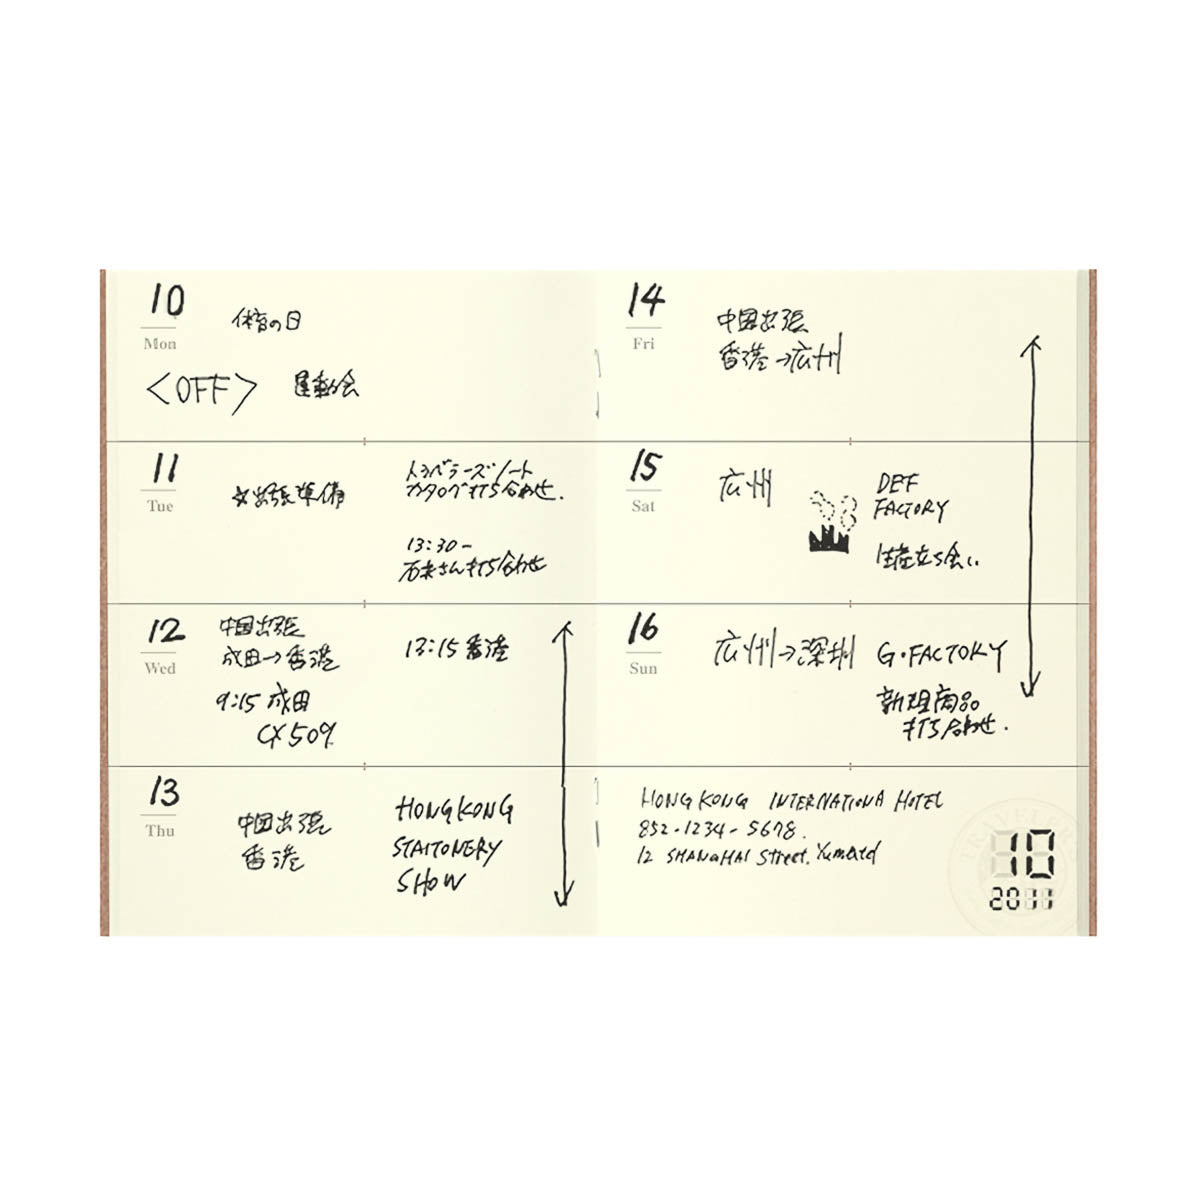 10
Mon
体育の日
<OFF> 運動会
11
Tue
出張準備
トラベラーズノート
カタログ打ち合わせ.
13:30-
石井さん打ち合わせ
12
Wed
中国出張
成田→香港
9:15 成田
CX509
13:15 香港
13
Thu
中国出張
香港
HONGKONG
STAITONERY
SHOW
14
Fri
中国出張
香港→広州
15
Sat
広州
DEF
FACTORY
生産立ち会い
16
Sun
広州→深圳
G・FACTORY
新規商品
打ち合わせ.
HONG KONG INTERNATIONA HOTEL
852-1234-5678.
12 SHANGHAI Street. Yumatd
TRAVELER'S
10
2011